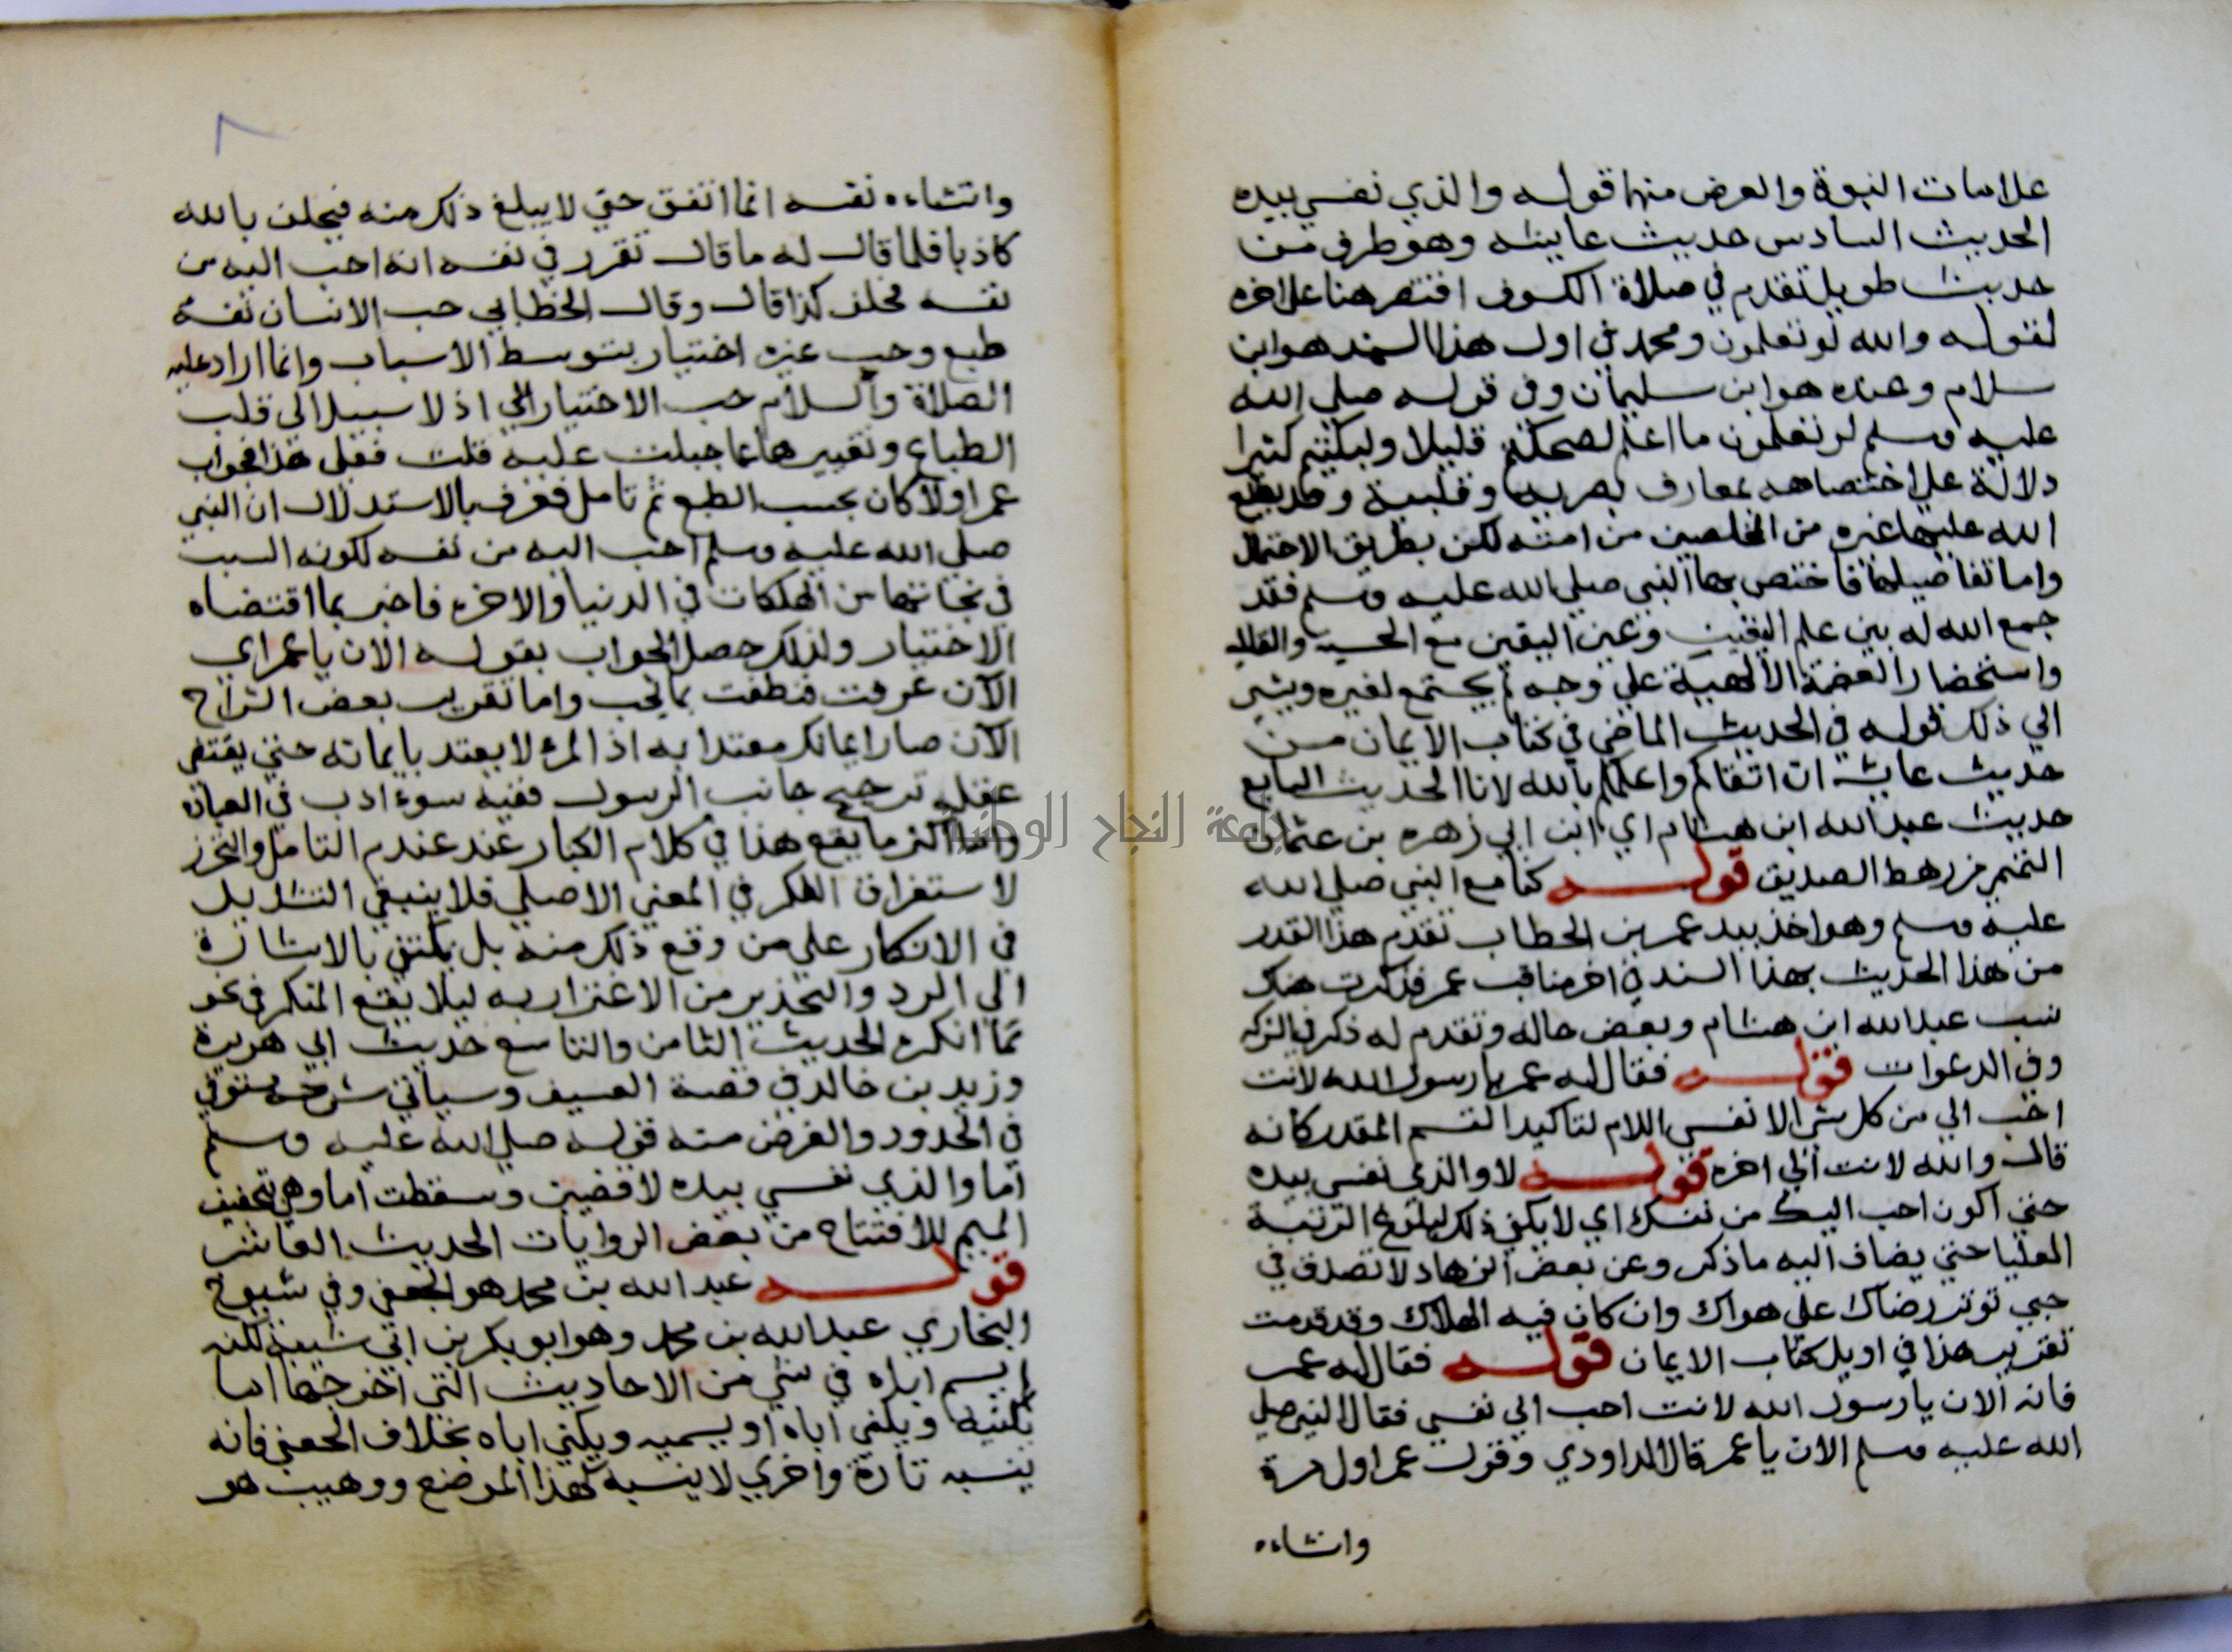 علامات النبوة والعرض منها قوله والذي نفسي بيده
الحديث السادس حديث عايشه وهو طرف من
حديث طويل تقدم في صلاة الكسوف اقتصر هنا على اخره
لقوله والله لو تعلمون ومحمد في اول هذا السند هو ابن
سلام وعبده هو ابن سليمان وفي قوله صلي الله
عليه وسلم لو تعلمون ما اعلم لضحكتم قليلا ولبكيتم كثيرا
دلالة علي اختصاصه بمعارف بصريه وقلبية وقد يطلع
الله عليها غيره من المخلصين من امته لكن بطريق الاجمال
واما تفاصيلها فاختص بها النبي صلي الله عليه وسلم فقد
جمع الله له بين علم اليقين وعين اليقين مع الخشية القلبيه
واستحضار العضمة الالهية علي وجه لم يجتمع لغيره ويشير
الي ذلك قوله في الحديث الماضي في كتاب الايمان من
حديث عايشة ان اتقاكم واعلمكم بالله لانا الحديث السابع
حديث عبد الله ابن هشام اي ابن ابي زهره بن عثمان
التيمي من رهط الصديق قوله كنا مع النبي صلي الله
عليه وسلم وهو اخذ بيد عمر بن الخطاب تقدم هذا القدر
من هذا الحديث بهذا السند في اخر مناقب عمر فذكرت هناك
نسب عبد الله ابن هشام وبعض حاله وتقدم له ذكر في الشركه
وفي الدعوات قوله فقال له عمر يا رسول الله لانت
احب الي من كل شي الا نفسي اللام لتاكيد القسم المقدر كانه
قال والله لانت الي اخره قوله لا والذي نفسي بيده
حتي اكون احب اليك من نفسك اي لا يكفي ذلك لبلوغ الرتبة
العليا حتي يضاف اليه ما ذكر وعن بعض الزهاد لا تصدق في
حبي توثر رضاك على هواك وان كان فيه الهلاك وقد قدمت
تقريب هذا في اويل كتاب الايمان قوله فقال له عمر
فانه الان يا رسول الله لانت احب الي نفسي فقال النبي صلي
الله عليه وسلم الان يا عمر قال الداودي وقول عمر اول مرة
واتشاءه
٨
واتشاءه نفسه انما اتفق حتي لا يبلغ ذلك منه فيحلف بالله
كاذبا فلما قال له ما قال تقرر في نفسه انه احب اليه من
نفسه فحلف كذا قال وقال الخطابي حب الانسان نفسه
طبع وحب غيره اختيار بتوسط الاسباب وانما اراد عليه
الصلاة والسلام حب الاختيار الي اذ لا سبيل الى قلب
الطباع وتغييرها عما جبلت عليه قلت فعلى هذا فجواب
عمر اولا كان بحسب الطبع ثم تامل فعرف بالاستدلال ان النبي
صلي الله عليه وسلم احب اليه من نفسه لكونه السبب
في نجاتها من الهلكات في الدنيا والاخره فاخبر بما اقتضاه
الاختيار ولذلك حصل الجواب بقوله الان يا عمر اي
الآن عرفت فنطقت بما يجب واما تقرير بعض الشراح
الآن صار ايمانك معتدا به اذ المرء لا يعتد بايمانه حتي يقتضي
عقله ترجيح جانب الرسول ففيه سوء ادب في العباره
وما اكثر ما يقع هذا في كلام الكبار عند عندم التامل والتحرز
لاستغراق الفكر في المعني الاصلي فلا ينبغي التشديد
في الانكار علي من وقع ذلك منه بل يكتفي بالاشارة
الي الرد والتحذير من الاغترار به ليلا يقع المنكر في نحو
مما انكره الحديث الثامن والتاسع حديث ابي هريرة
وزيد بن خالد في قصة العسيف وسياتي شرحه مستوفي
في الحدود والغرض منه قوله صلي الله عليه وسلم
اما والذي نفسي بيده لاقضين وسقطت اما وهي بتخفيف
الميم للافتتاح من بعض الروايات الحديث العاشر
قوله عبد الله بن محمد هو الجعفي وفي شيوخ
البخاري عبد الله بن محمد وهو ابو بكر بن ابي شيبة لكنه
لم يسم اباه في شي من الاحاديث التي اخرجها اما
يكنيه ويكني اباه او يسميه ويكني اباه بخلاف الجعفي فانه
ينسبه تارة واخري لا ينسبه كهذا الموضع ووهيب هو
جامعة النجاح الوطنية